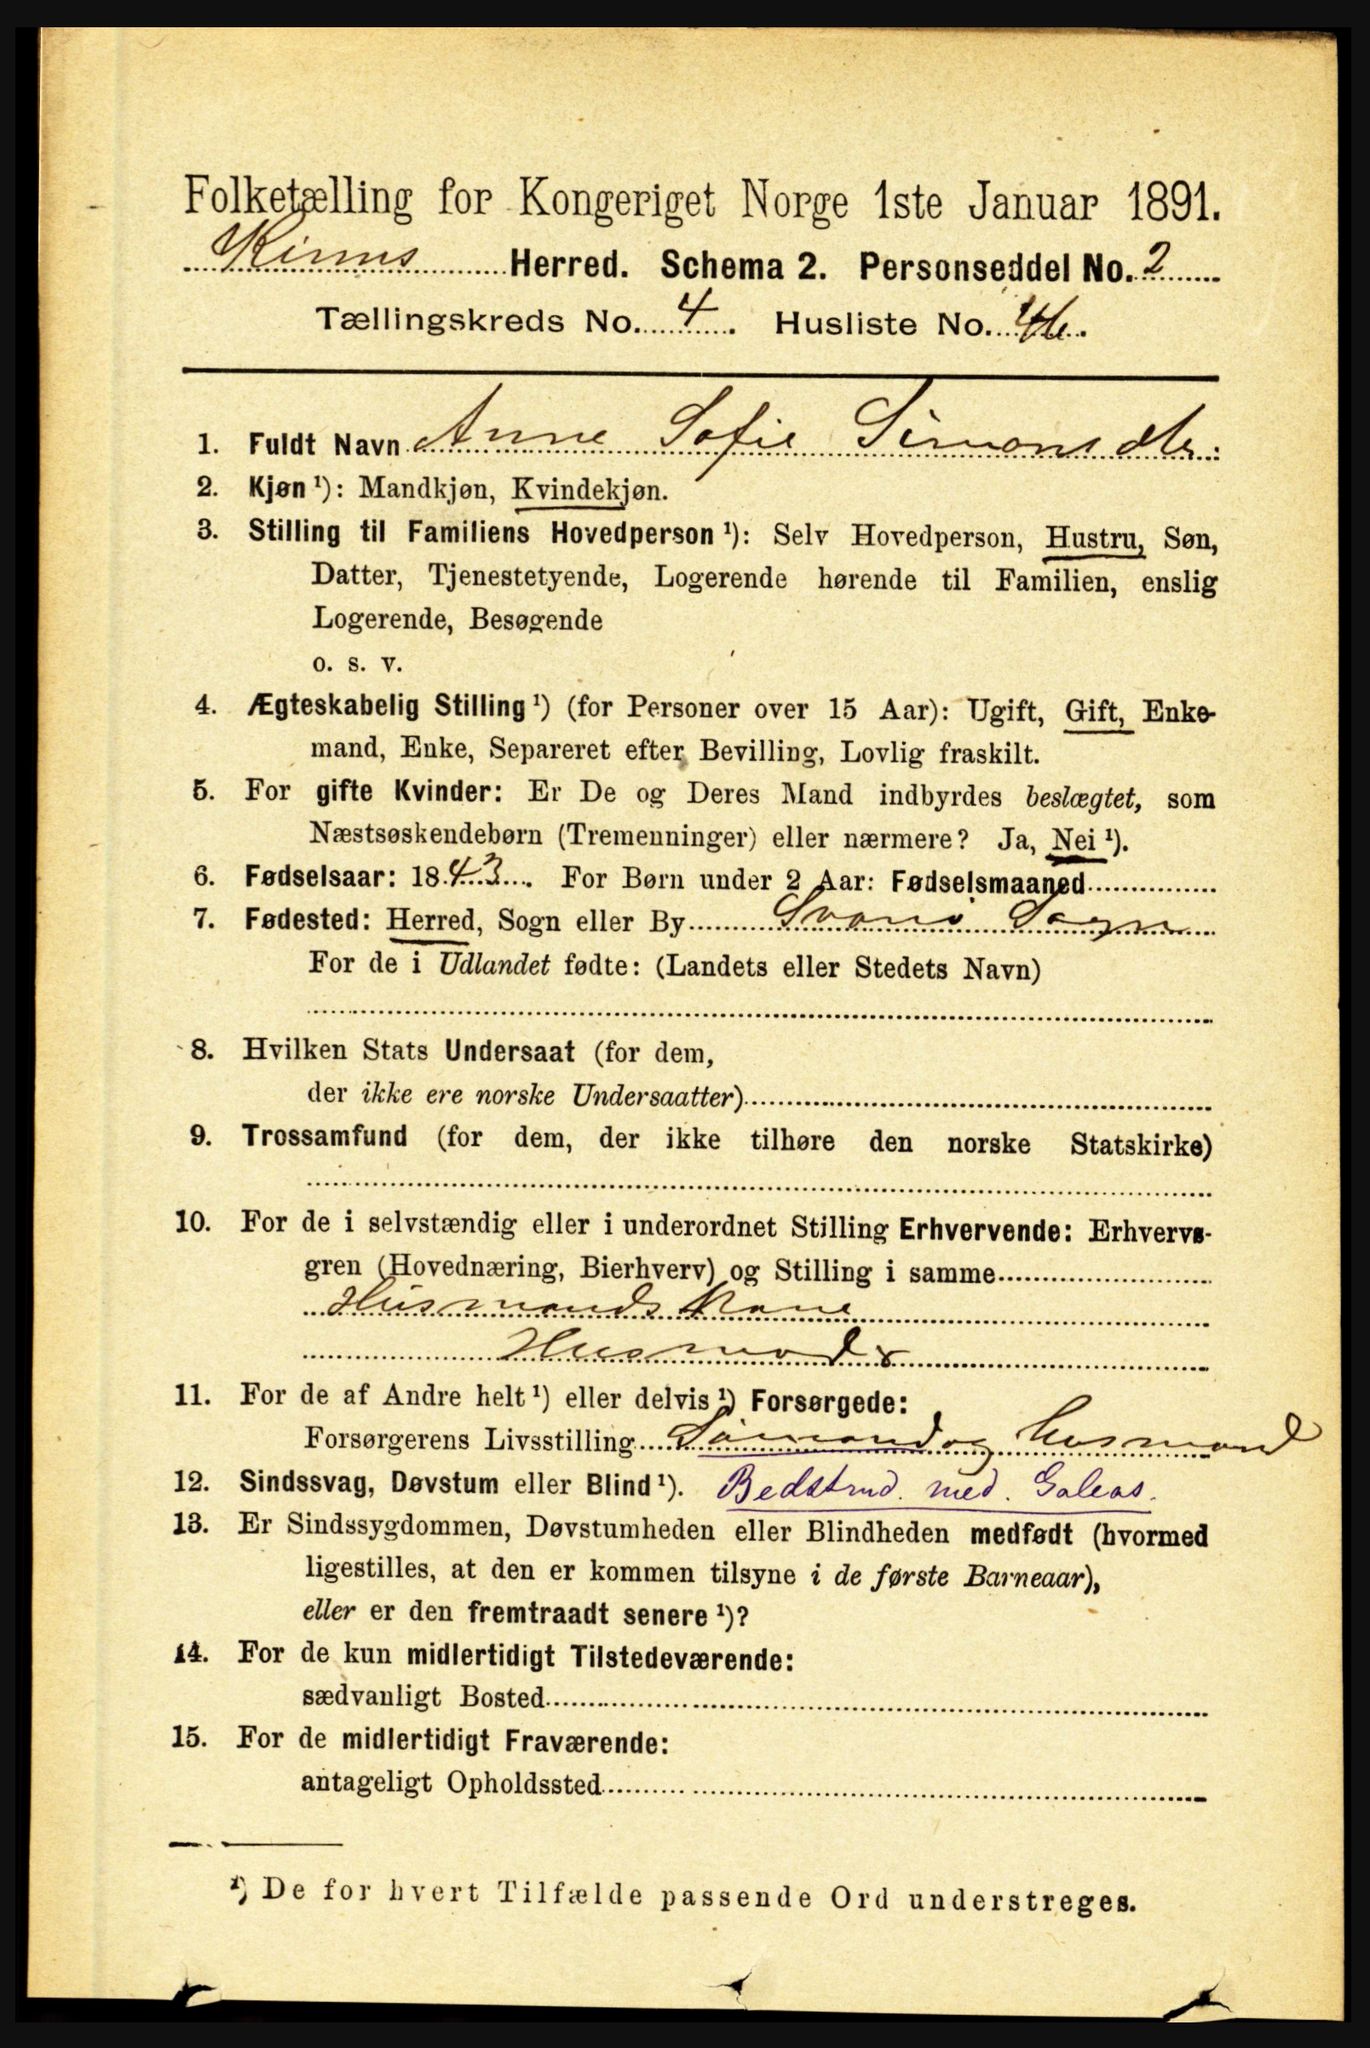 Folketælling for Kongeriget Norge 1ste Januar 1891.
Kinns Herred. Schema 2. Personseddel No. 2
Tællingskreds No. 4. Husliste No.
1. Fuldt Navn Anne Sofie Simonsdtr.
2. Kjøn ¹): Mandkjøn, Kvindekjøn.
3. Stilling til Familiens Hovedperson ¹): Selv Hovedperson, Hustru, Søn,
Datter, Tjenestetyende, Logerende hørende til Familien, enslig
Logerende, Besøgende
o. s. v.
4. Ægteskabelig Stilling ¹) (for Personer over 15 Aar): Ugift, Gift, Enke-
mand, Enke, Separeret efter Bevilling, Lovlig fraskilt.
5. For gifte Kvinder: Er De og Deres Mand indbyrdes beslægtet, som
Næstsøskendebørn (Tremenninger) eller nærmere? Ja, Nei ¹).
6. Fødselsaar: 1843. For Børn under 2 Aar: Fødselsmaaned
7. Fødested: Herred, Sogn eller By Svanø Sogn
For de i Udlandet fødte: (Landets eller Stedets Navn)
8. Hvilken Stats Undersaat (for dem,
der ikke ere norske Undersaatter)
9. Trossamfund (for dem, der ikke tilhøre den norske Statskirke)
10. For de i selvstændig eller i underordnet Stilling Erhvervende: Erhvervs-
gren (Hovednæring, Bierhverv) og Stilling i samme
Husmandskone
11. For de af Andre helt ¹) eller delvis ¹) Forsørgede:
Forsørgerens Livsstilling og Husmand
12. Sindssvag, Døvstum eller Blind ¹). med
13. Er Sindssygdommen, Døvstumheden eller Blindheden medfødt (hvormed
ligestilles, at den er kommen tilsyne i de første Barneaar),
eller er den fremtraadt senere ¹)?
14. For de kun midlertidigt Tilstedeværende:
sædvanligt Bosted
15. For de midlertidigt Fraværende:
antageligt Opholdssted
¹) De for hvert Tilfælde passende Ord understreges.